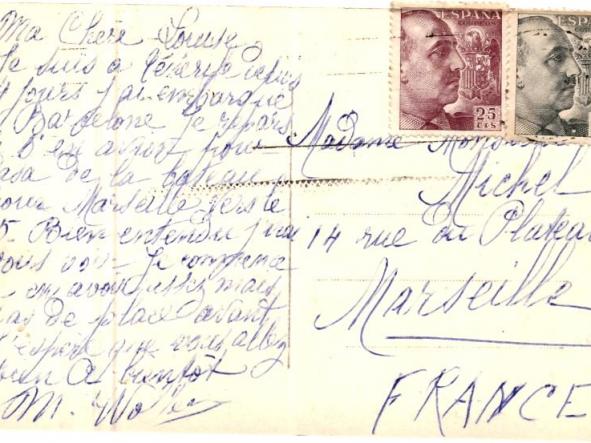 Ma Chère Louise
Je suis a Ténérife depuis
4 jours j'ai embarqué
Barcelone je repars
avion pour
Casa de la bateau
pour Marseille vers le
5 Bien entendu j'irai
vous voir Je commence
en avoir assez mais
pas de place avant
J'espère que vous allez
bien A bientôt
M.
ESPAÑA
CORREOS
25
CTS
ESPAÑA
Madame
Michel
14 rue du Plateau
Marseille
FRANCE